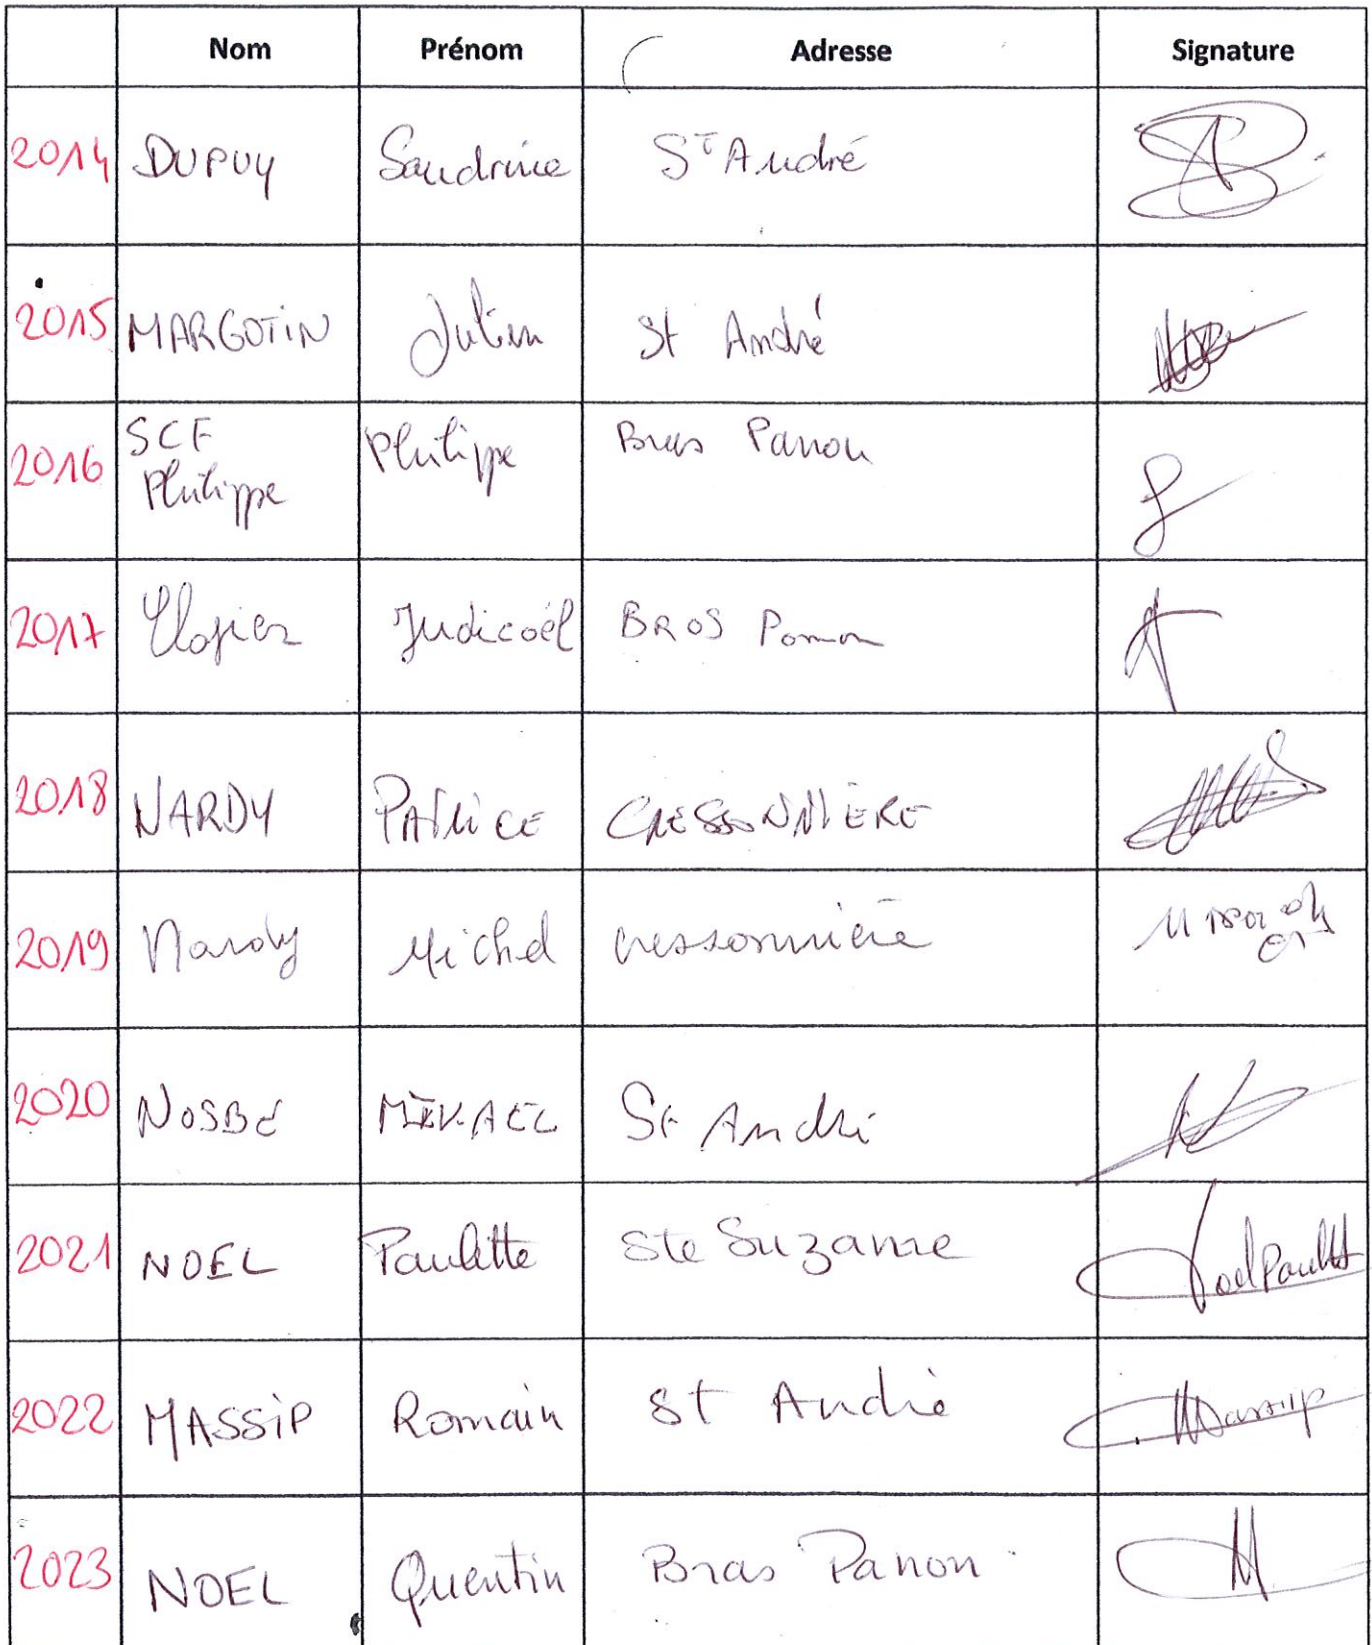 Nom Prénom Adresse Signature
2014 DUPUY Sandrine St André
2015 MARGOTIN Julien St André
2016 SCF Philippe Philippe Bras Panon
2017 Judicaël BRAS Panon
2018 NARDY PATRICE CRESSONNIÈRE
2019 Nardy Michel cressonnière
2020 NOSBÉ MIKAEL St André
2021 NOEL Paulette Ste Suzanne Noel Paulette
2022 MASSIP Romain St André Massip
2023 NOEL Quentin Bras Panon